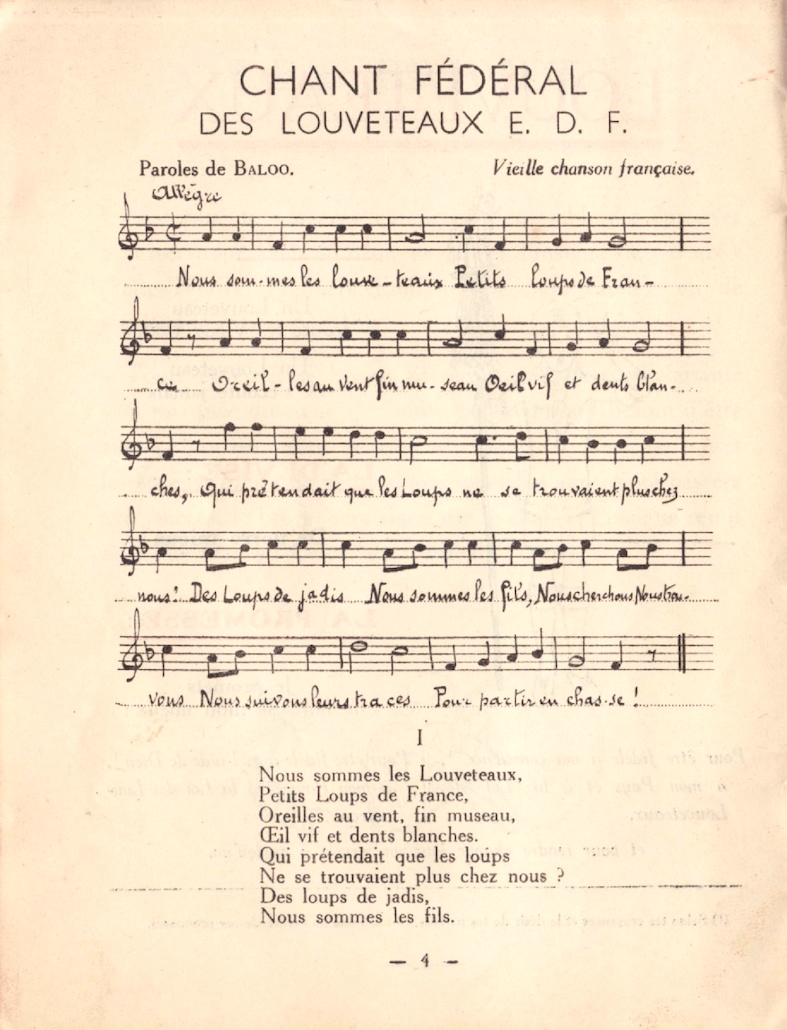 CHANT FÉDÉRAL
DES LOUVETEAUX E. D. F.
Paroles de BALOO. Vieille chanson française.
Allègre
Nous som-mes les louve-teaux Petits loups de Fran-
ce Oreil-les au vent fin mu-seau Oeil vif et dents blan-
ches, Qui prétendait que les Loups ne se trouvaient plus chez
nous! Des Loups de jadis Nous sommes les fils, Nous cherchons Nous trou-
vons Nous suivons leurs traces Pour partir en chas-se!
I
Nous sommes les Louveteaux,
Petits Loups de France,
Oreilles au vent, fin museau,
Œil vif et dents blanches.
Qui prétendait que les loups
Ne se trouvaient plus chez nous ?
Des loups de jadis,
Nous sommes les fils.
— 4 —